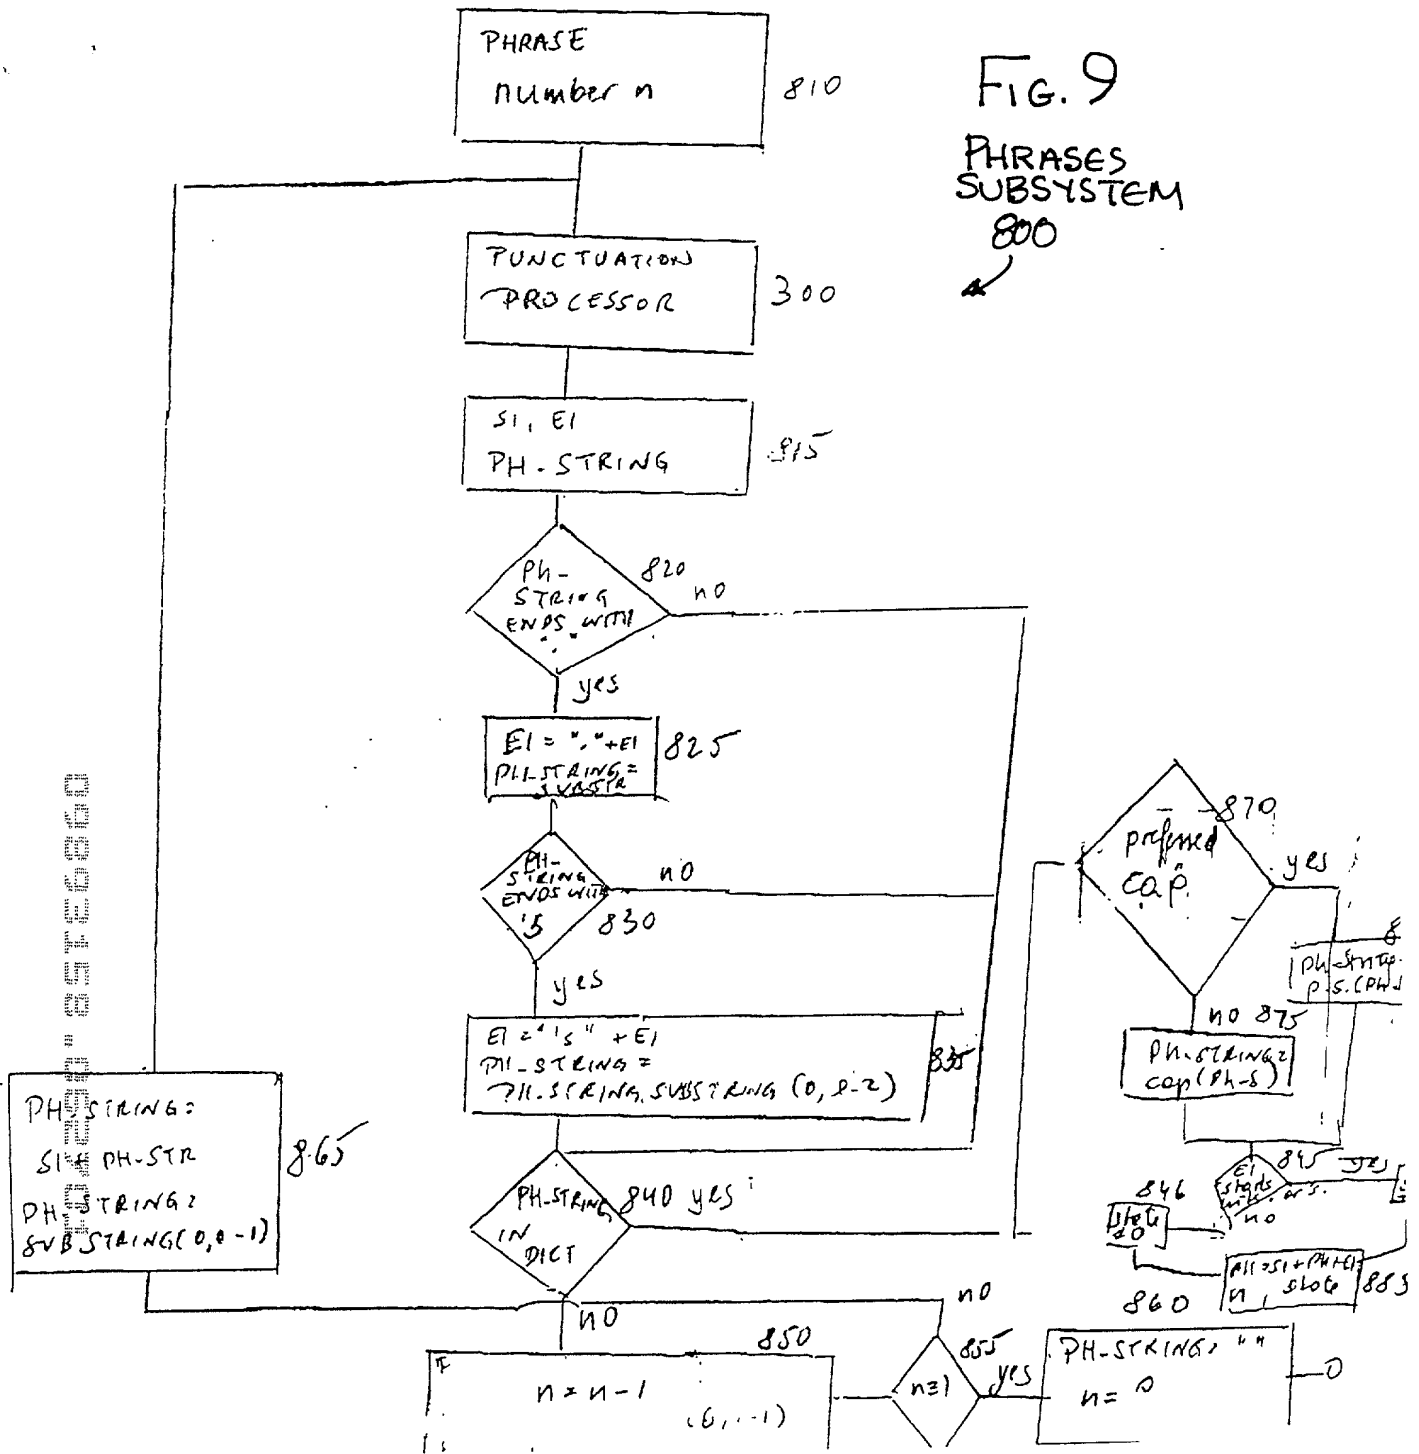 PHRASE
number n
810
FIG. 9
PHRASES
SUBSYSTEM
800
PUNCTUATION
PROCESSOR
300
SI, EI
PH-STRING
815
PH-
STRING
ENDS WITH
"."
820
no
yes
EI = "." + EI
PH-STRING =
SUBSTR
825
PH-
STRING
ENDS WITH
's
no
830
yes
EI = "'s" + EI
PH-STRING =
PH.STRING.SUBSTRING (0, l-2)
835
PH-STRING
IN
DICT
840 yes
no
PH-STRING=
SI + PH-STR
PH-STRING=
SUBSTRING(0,l-1)
865
850
n = n-1
855
n=1
no
yes
860
PH-STRING= ""
n = 0
0
870
preferred
cap.
yes
no 875
PH-STRING=
cap(Ph-S)
Ph-String
P.S.(PH-
EI
starts
845
yes
no
846
state
PH=SI+PH+EI
n, state
885
09893158